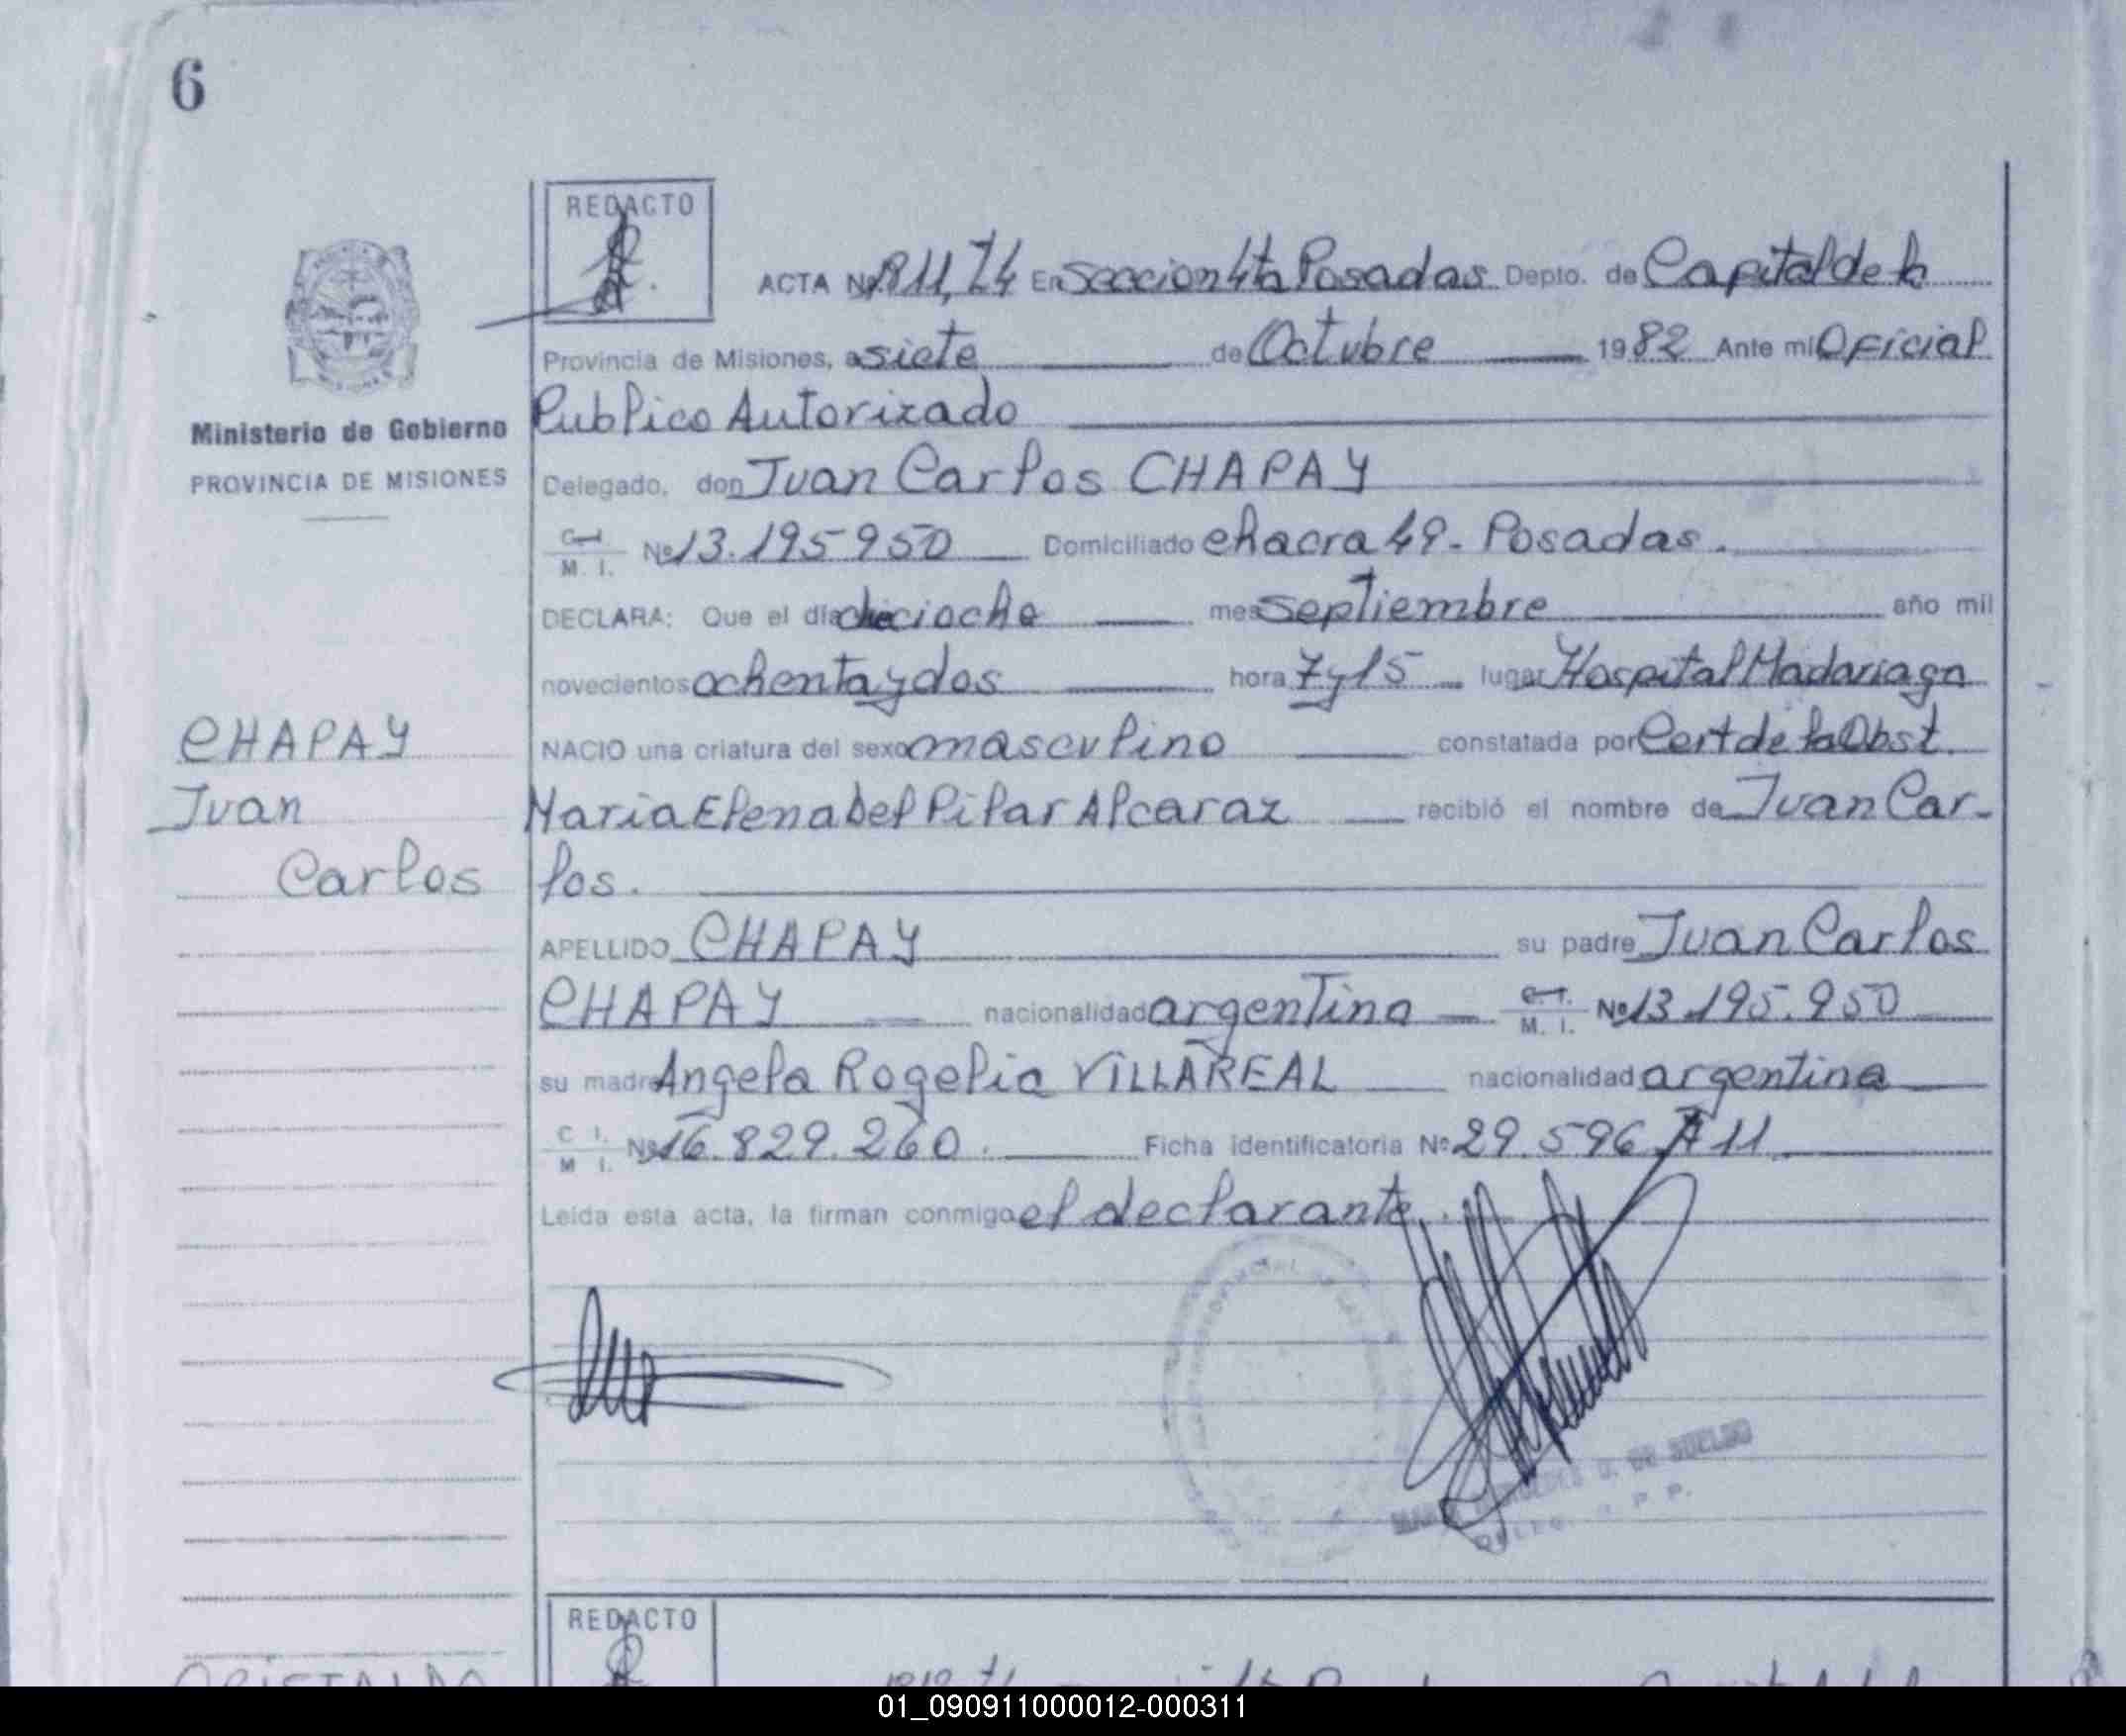 6
REDACTO
ACTA Nº 1811, T4 En Seccion 4ta Posadas Depto. de Capital de la
Provincia de Misiones, a siete de Octubre 1982 Ante mi Oficial
Ministerio de Gobierno
Publico Autorizado
PROVINCIA DE MISIONES
Delegado, don Juan Carlos CHAPAY
C.I. M. I. Nº 13.195950 Domiciliado chacra 49 - Posadas.
DECLARA: Que el día dieciocho mes septiembre año mil
novecientos ochenta y dos hora 7 y 15 lugar Hospital Madariaga
CHAPAY
NACIO una criatura del sexo masculino constatada por Cert de la Obst.
Juan
Maria Elena del Pilar Alcaraz recibió el nombre de Juan Car-
Carlos
los.
APELLIDO CHAPAY su padre Juan Carlos
CHAPAY nacionalidad argentino C.I. M. I. Nº 13.195.950
su madre Angela Rogelia VILLAREAL nacionalidad argentina
C I. M I. Nº 16.829.260. Ficha identificatoria Nº 29.596 A 11
Leída esta acta, la firman conmigo el declarante.
REDACTO
01_090911000012-000311